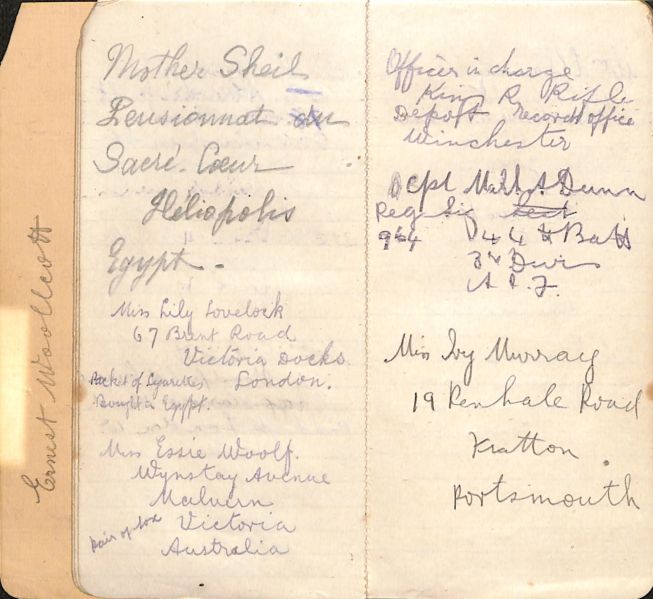 Ernest Woollcott
Mother Sheil
Pensionnat du
Sacré. Cœur
Héliopolis
Egypt.
Miss Lily Lovelock
67 Brent Road
Victoria Docks
London.
Packet of Cigarettes
Bought in Egypt.
Miss Essie Woolf.
Wynstay Avenue
Malvern
Pair of sox
Victoria
Australia
Officer in charge
King R. Rifle
Depot records office
Winchester
Cpl A Dunn
Reg Sig
964 44th Batt
3rd Div
A.I.F.
Miss Ivy Murray
19 Penhale Road
Fratton.
Portsmouth